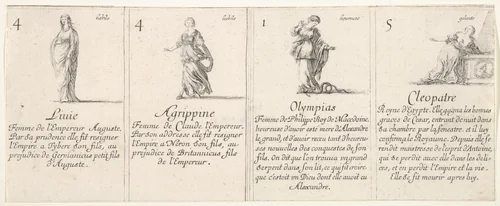 4 habile
Livie
Femme de l'Empereur Auguste.
Par sa prudence elle fit resigner
l'Empire a Tybere son fils, au
prejudice de Germanicus petit fils
d'Auguste.
4 habile
Agrippine
Femme de Claude l'Empereur.
Par son addresse elle fit resigner
l'Empire a Neron son fils, au
prejudice de Britannicus fils
de l'Empereur.
1 heureuse
Olympias
Femme de Philippe Roy de Macedoine.
heureuse d'avoir esté mere d'Alexandre
le grand, et d'avoir receu tant d'heureu-
ses nouvelles des conquestes de son
fils. On dit que l'on trouva un grand
serpent dans son lit, ce qui fit croire
que c'estoit un Dieu dont elle avoit eu
Alexandre.
5 galante
Cleopatre
Reyne d'Egypte. Elle gagna les bonnes
graces de Cesar, entrant de nuit dans
sa chambre par la fenestre, et il luy
confirma le Royaume. Depuis elle se
rendit maistresse de l'esprit d'Antoine,
qui se perdit avec elle dans les deli-
ces, et en perdit l'Empire et la vie.
Elle se fit mourir apres luy.